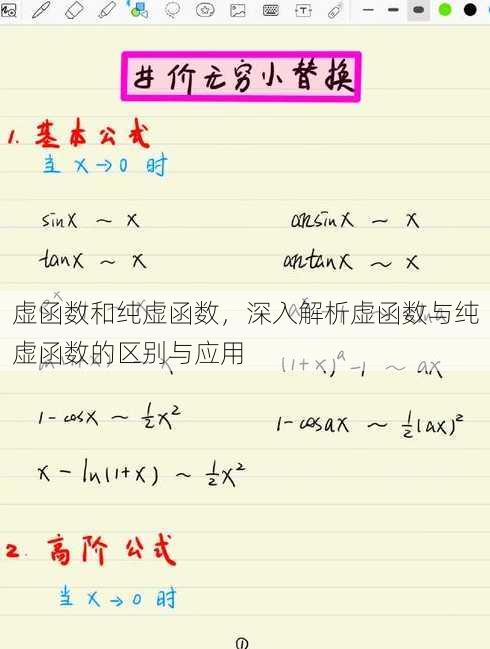 等价无穷小替换
1. 基本公式
当 x→0 时
sinx ~ x arcsinx ~ x
tanx ~ x arctanx ~ x
虚函数和纯虚函数，深入解析虚函数与纯
虚函数的区别与应用
(1+x)^a -1 ~ ax
1-cosx ~ 1/2 x² 1-cosax ~ 1/2 (ax)²
x - ln(1+x) ~ 1/2 x²
2. 高阶公式
当 x→0 时
①